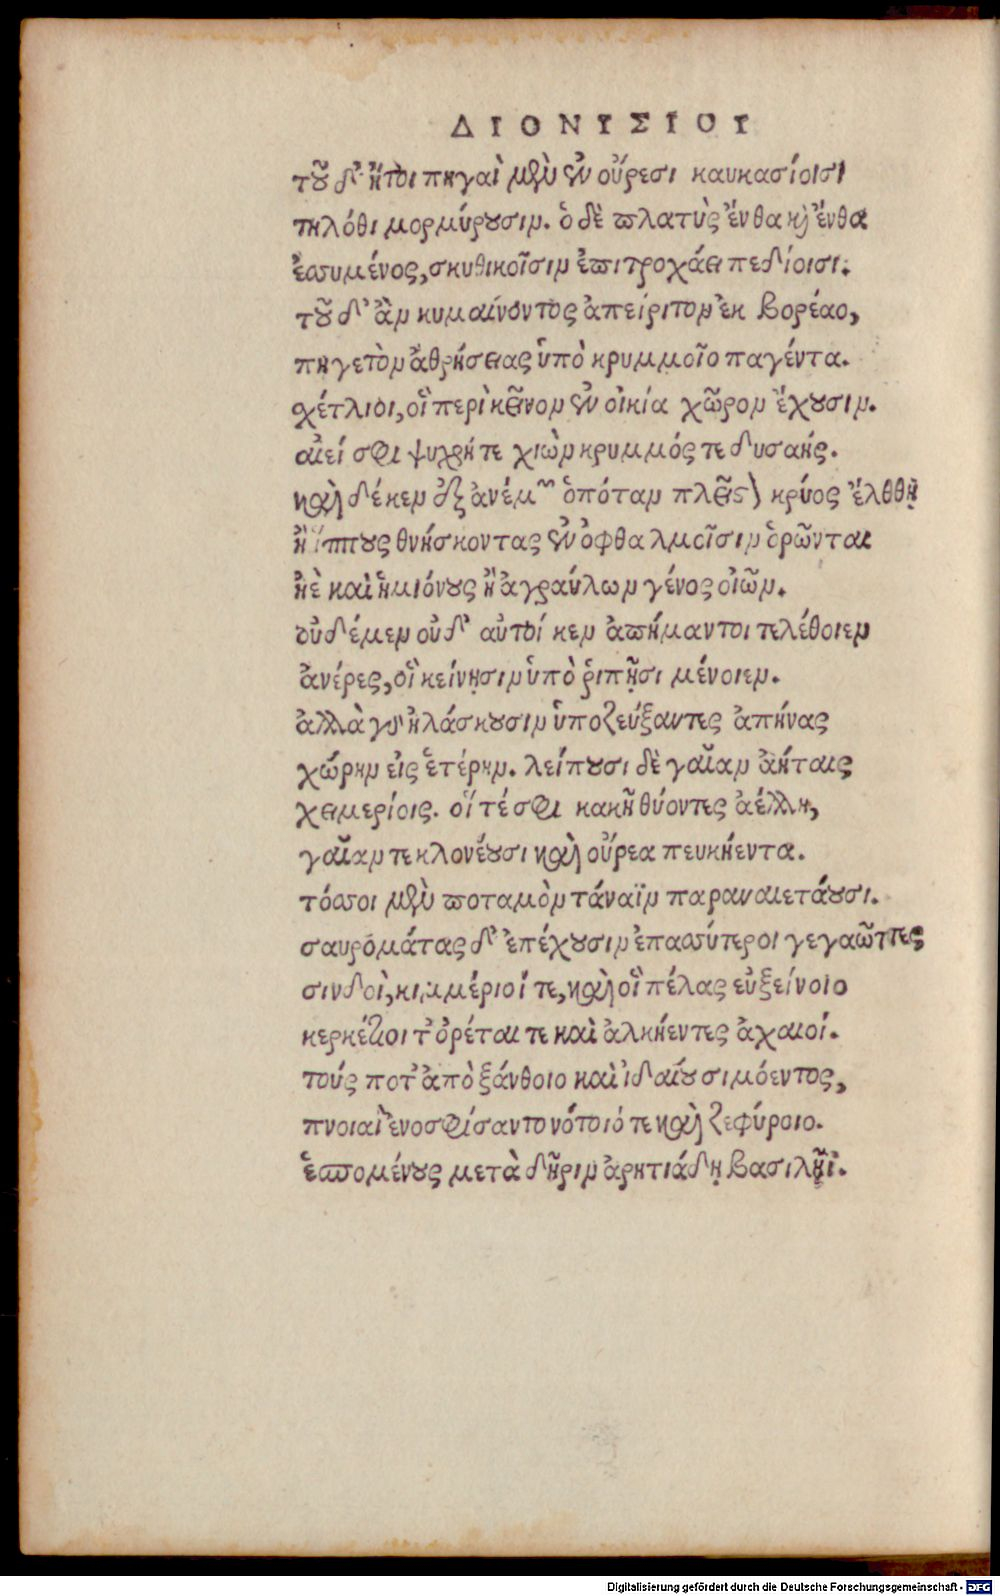 ΔΙΟΝΥΣΙΟΥ
τοῦ δ' ἤτοι πηγαὶ μὲν ἐν οὔρεσι καυκασίοισι
τηλόθι μορμύρουσιν. ὁ δὲ πλατὺς ἔνθα καὶ ἔνθα
ἐσσυμένος, σκυθικοῖσιν ἐπιτροχάει πεδίοισι.
τοῦ δ' ἂν κυμαίνοντος ἀπείριτον ἐκ βορέαο,
πηγετὸν ἀθρήσειας ὑπὸ κρυμμοῖο παγέντα.
σχέτλιοι, οἳ περὶ κεῖνον ἐν οἰκία χῶρον ἔχουσιν.
αἰεί σφι ψυχρή τε χιὼν κρυμμός τε δυσαής.
καὶ δέ κεν ἐξ ἀνέμων ὁπόταν πλεῖστον κρύος ἔλθῃ
ἢ ἵππους θνήσκοντας ἐν ὀφθαλμοῖσιν ὁρῶνται
ἠὲ καὶ ἡμιόνους ἢ ἀγραύλων γένος οἰῶν.
οὐδέ μεν οὐδ' αὐτοί κεν ἀπήμαντοι τελέθοιεν
ἀνέρες, οἳ κείνῃσιν ὑπὸ ῥιπῇσι μένοιεν.
ἀλλὰ γὰρ ἠλάσκουσιν ὑποζεύξαντες ἀπήνας
χώρην εἰς ἑτέρην. λείπουσι δὲ γαῖαν ἀήταις
χειμερίοις. οἵ τέ σφι κακῇ θύοντες ἀέλλῃ,
γαῖάν τε κλονέουσι καὶ οὔρεα πευκήεντα.
τόσσοι μὲν ποταμὸν τάναϊν παραναιετάουσι.
σαυρομάτας δ' ἐπέχουσιν ἐπασσύτεροι γεγαῶτες
σινδοὶ, κιμμέριοί τε, καὶ οἳ πέλας εὐξείνοιο
κερκέτιοι τ' ὀρέται τε καὶ ἀλκήεντες ἀχαιοί.
τούς ποτ' ἀπὸ ξάνθοιο καὶ ἰδαίου σιμόεντος,
πνοιαὶ ἐνοσφίσαντο νότοιό τε καὶ ζεφύροιο.
ἑσπομένους μετὰ δῆριν ἀρητιάδῃ βασιλῆϊ.
Digitalisierung gefördert durch die Deutsche Forschungsgemeinschaft - DFG